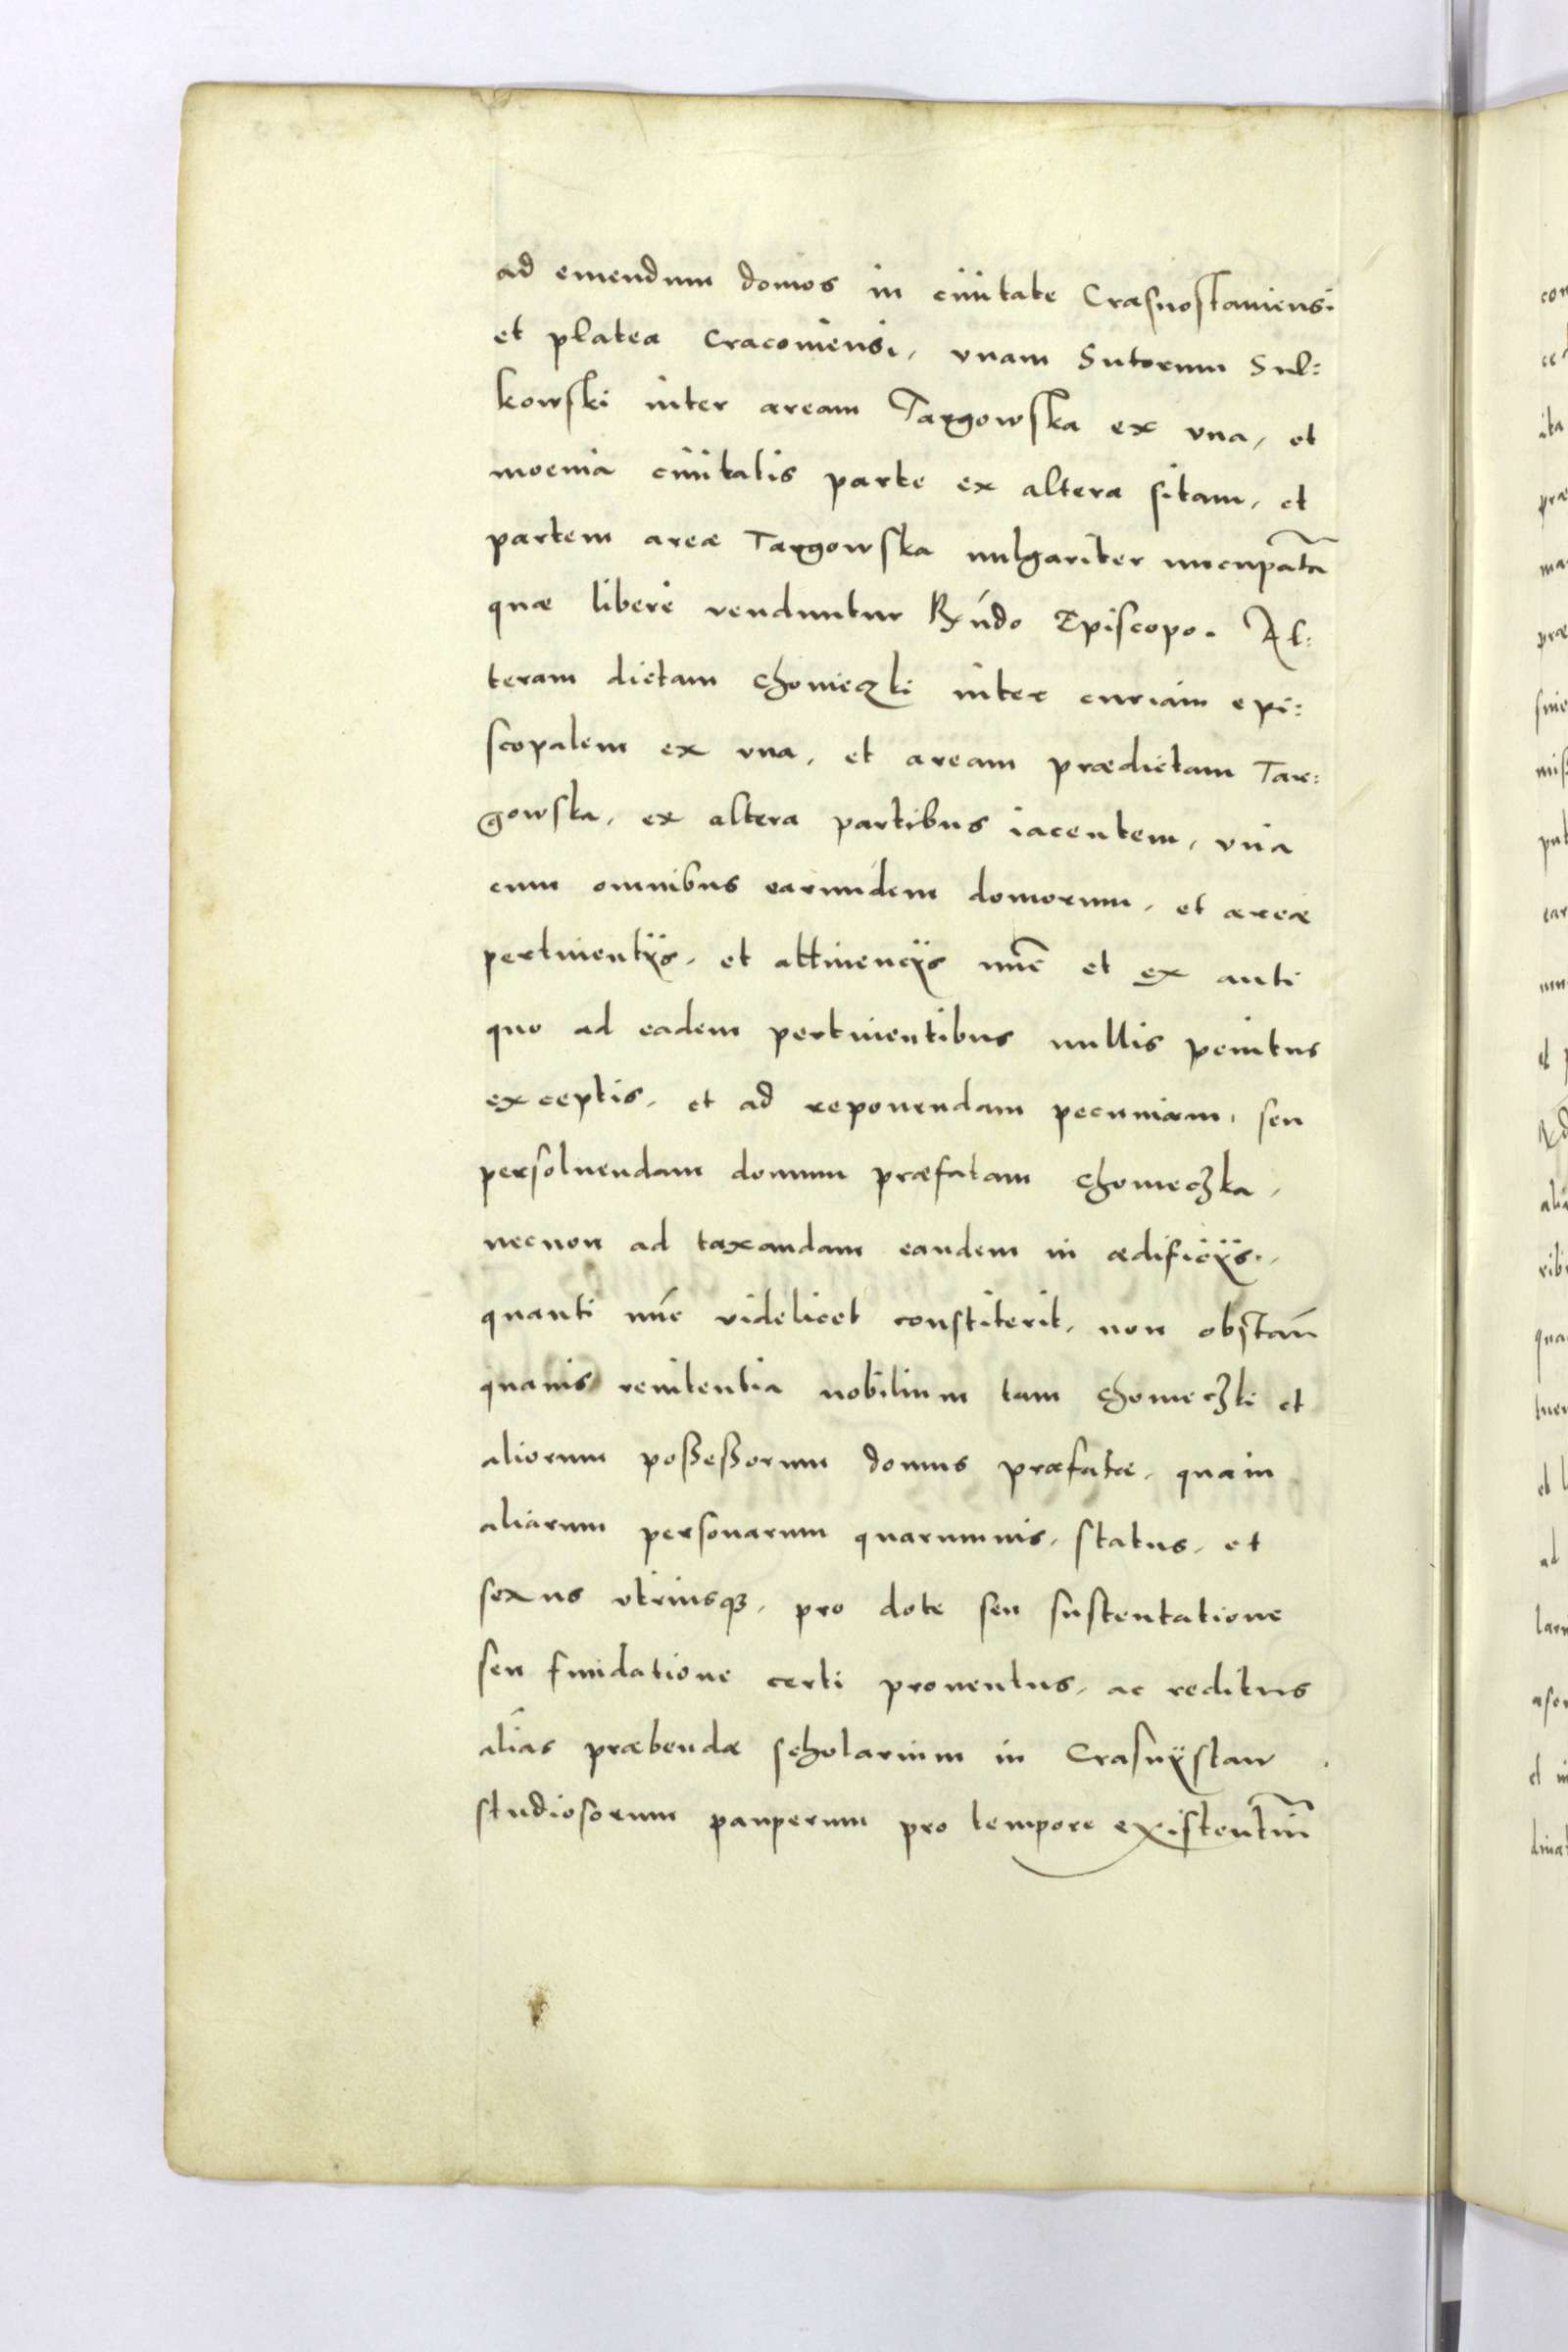 ad emendum domos in ciuitate Crasnostauiensi
et platea Cracouiensi, vnam Sutorum Sul:
kowski inter aream Targowska ex vna, et
moenia ciuitatis parte ex altera sitam, et
partem areæ Targowska uulgariter nūcupatā
quæ libere venduntur Rx́ndo Episcopo. Al:
teram dictam Chomeczki inter curiam epi:
scopalem ex vna, et aream prædictam Tar:
gowska, ex altera partibus iacentem, vna
cum omnibus earundem domorum, et areæ
pertinentijs, et attinencijs nūc et ex anti
quo ad eadem pertinentibus nullis penitus
exceptis, et ad reponendam pecuniam, seu
persoluendam domum præfatam Chomeczka,
necnon ad taxandam eandem in ædificijs,
quanti nūc videlicet constiterit, non obstāti
quauis renitentia nobilium tam Chomeczki et
aliorum possessorum domus præfatæ, quam
aliarum personarum quarumuis, status, et
sexus vtriusq3, pro dote seu sustentatione
seu fundatione certi prouentus, ac reditus
alias præbendæ scholarium in Crasnijstaw
studiosorum pauperum pro tempore existentiū
con
ita
præ
ma
præ
sine
put
ear
et
alia
ribu
qua
et
ad
larū